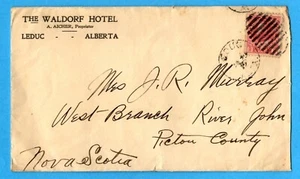 THE WALDORF HOTEL
A. AICHER, Proprietor
LEDUC - - ALBERTA
Mrs J. R. Murray
West Branch River John
Pictou County
Nova Scotia